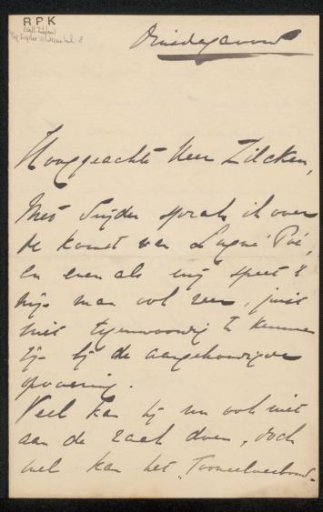 RPK
Dinsdagavond
Hooggeachte Heer Zilcken,
Met Snijder sprak ik over
de komst van Lugné Poë,
en even als mij speet 't
hem ook zeer, juist
niet tegenwoordig te kunnen
zijn bij de aangekondigde
opvoering.
Veel kan hij nu ook niet
aan de zaak doen, doch
wel kan het "Tooneelverbond"